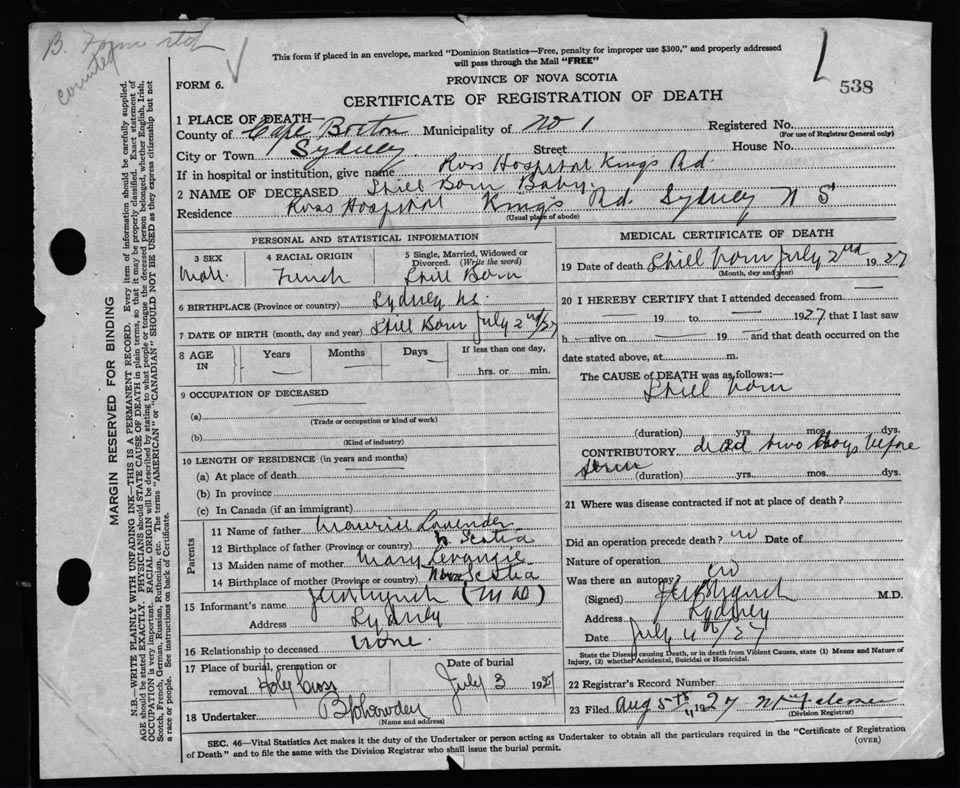 B. Form
counted
This form if placed in an envelope, marked "Dominion Statistics—Free, penalty for improper use $300," and properly addressed
will pass through the Mail "FREE"
FORM 6.
PROVINCE OF NOVA SCOTIA
538
CERTIFICATE OF REGISTRATION OF DEATH
1 PLACE OF DEATH—
County of Cape Breton Municipality of No 1 Registered No.
(For use of Registrar General only)
City or Town Sydney Street House No.
If in hospital or institution, give name Ross Hospital Kings Rd.
2 NAME OF DECEASED Still Born Baby.
Residence Ross Hospital Kings Rd. Sydney N S
(Usual place of abode)
PERSONAL AND STATISTICAL INFORMATION
3 SEX
Male
4 RACIAL ORIGIN
French
5 Single, Married, Widowed or
Divorced. (Write the word)
Still Born
6 BIRTHPLACE (Province or country) Sydney ns.
7 DATE OF BIRTH (month, day and year) Still Born July 2nd/27
8 AGE
IN
Years
Months
Days
If less than one day,
hrs. or min.
9 OCCUPATION OF DECEASED
(a)
(Trade or occupation or kind of work)
(b)
(Kind of industry)
10 LENGTH OF RESIDENCE (in years and months)
(a) At place of death
(b) In province
(c) In Canada (if an immigrant)
Parents
11 Name of father Maurise Lavender
12 Birthplace of father (Province or country) N Scotia
13 Maiden name of mother Mary
14 Birthplace of mother (Province or country) Nova Scotia
15 Informant's name Lynch (M D)
Address Sydney
16 Relationship to deceased none.
17 Place of burial, cremation or
removal Holy Cross
Date of burial
July 3 1927
18 Undertaker
(Name and address)
MEDICAL CERTIFICATE OF DEATH
19 Date of death Still born July 2nd 1927
(Month, day and year)
20 I HEREBY CERTIFY that I attended deceased from
19 to 1927 that I last saw
h alive on 19 and that death occurred on the
date stated above, at m.
The CAUSE of DEATH was as follows:—
Still born
(duration) yrs. mos. dys.
CONTRIBUTORY dead two days before
born
(duration) yrs. mos. dys.
21 Where was disease contracted if not at place of death?
Did an operation precede death? no Date of
Nature of operation
Was there an autopsy no
(Signed) Lynch M.D.
Address Sydney
Date July 4th/27
State the Disease causing Death, or in death from Violent Causes, state (1) Means and Nature of
Injury, (2) whether Accidental, Suicidal or Homicidal.
22 Registrar's Record Number
23 Filed Aug 5th 1927
(Division Registrar)
SEC. 46—Vital Statistics Act makes it the duty of the Undertaker or person acting as Undertaker to obtain all the particulars required in the "Certificate of Registration
of Death" and to file the same with the Division Registrar who shall issue the burial permit.
(OVER)
MARGIN RESERVED FOR BINDING
N.B.—WRITE PLAINLY WITH UNFADING INK—THIS IS A PERMANENT RECORD. Every item of information should be carefully supplied.
AGE should be stated EXACTLY. PHYSICIANS should STATE CAUSE OF DEATH in plain terms, so that it may be properly classified. Exact statement of
OCCUPATION is very important. RACIAL ORIGIN will be described by stating to what people or tongue the deceased person belonged, whether English, Irish,
Scotch, French, German, Russian, Ruthenian, etc. The terms "AMERICAN" or "CANADIAN" SHOULD NOT BE USED as they express citizenship but not
a race or people. See instructions on back of Certificate.